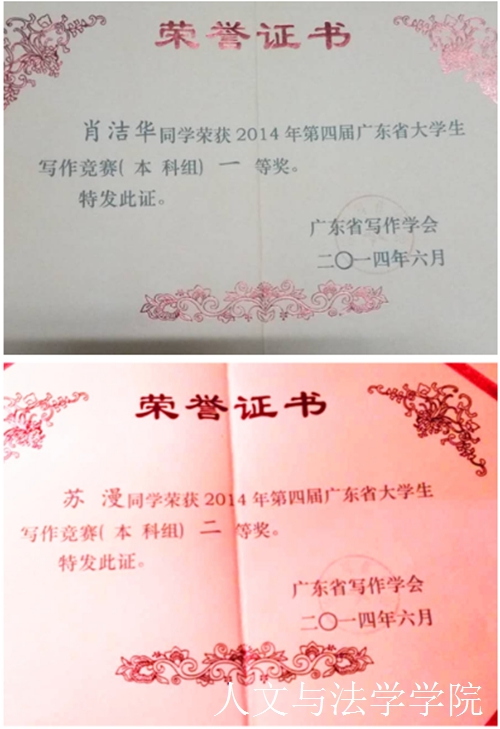 荣誉证书
肖洁华同学荣获2014年第四届广东省大学生
写作竞赛(本 科组) 一 等奖。
特发此证。
广东省写作学会
二〇一四年六月
荣誉证书
苏 漫同学荣获2014年第四届广东省大学生
写作竞赛(本 科组) 二 等奖。
特发此证。
广东省写作学会
二〇一四年六月
人文与法学学院